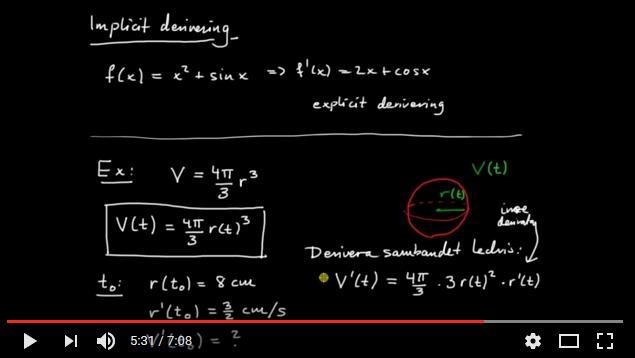 Implicit derivering
f(x) = x² + sin x => f'(x) = 2x + cos x
explicit derivering
Ex: V = 4π/3 r³
V(t)
r(t)
V(t) = 4π/3 r(t)³
inre
derivata
Derivera sambandet ledvis:
t₀: r(t₀) = 8 cm
V'(t) = 4π/3 · 3r(t)² · r'(t)
r'(t₀) = 3/2 cm/s
V'(t₀) = ?
5:31 / 7:08